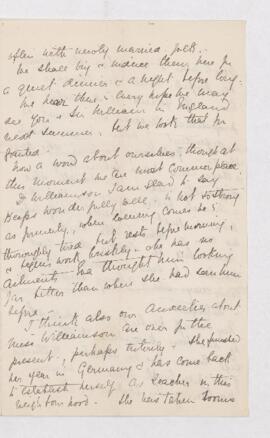 often with newly married folk.
We shall try & induce them here for
a quiet dinner & a night before long.
We hear there is every hope we may
see you & Sir William in England
next summer, but we took that for
granted.
Now a word about ourselves, though at
this moment we are most commonplace.
Williamson I am glad to say
keeps wonderfully well, is not so strong
as formerly, when evening comes he is
thoroughly tired but rests before morning,
& begins work briskly - he has no
ailments thought him looking
far better than when she had seen him
before.
I think also our anxieties about
Miss Williamson are over for the
present, perhaps entirely. She finished
her year in Germany & has come back
to establish herself as teacher in this
neighbourhood. She has taken rooms